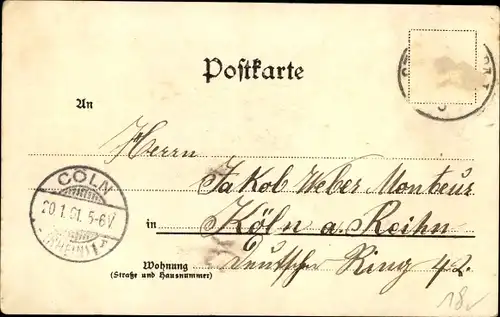 Postkarte
An
Herrn
Jakob Weber Monteur
in Köln a. Reihn
Wohnung Deutscher Ring 42.
(Straße und Hausnummer)
CÖLN
20.1.01.5-6V
(RHEIN) 1
18